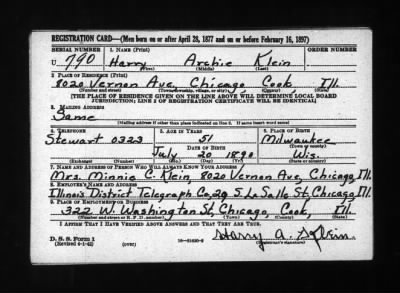 REGISTRATION CARD—(Men born on or after April 28, 1877 and on or before February 16, 1897)
SERIAL NUMBER 1. NAME (Print) ORDER NUMBER
U 790 Harry Archie Klein
(First) (Middle) (Last)
2. PLACE OF RESIDENCE (Print)
8020 Vernon Ave, Chicago, Cook Ill.
(Number and street) (Town, township, village, or city) (County) (State)
[THE PLACE OF RESIDENCE GIVEN ON THE LINE ABOVE WILL DETERMINE LOCAL BOARD
JURISDICTION; LINE 2 OF REGISTRATION CERTIFICATE WILL BE IDENTICAL]
3. MAILING ADDRESS
Same
[Mailing address if other than place indicated on line 2. If same insert word same]
4. TELEPHONE 5. AGE IN YEARS 6. PLACE OF BIRTH
Stewart 0323 51 Milwaukee
DATE OF BIRTH (Town or county)
July 20 1890 Wis.
(Exchange) (Number) (Mo.) (Day) (Yr.) (State or country)
7. NAME AND ADDRESS OF PERSON WHO WILL ALWAYS KNOW YOUR ADDRESS
Mrs. Minnie C. Klein, 8020 Vernon Ave, Chicago, Ill.
8. EMPLOYER'S NAME AND ADDRESS
Illinois District Telegraph Co, 29 S. La Salle St, Chicago, Ill.
9. PLACE OF EMPLOYMENT OR BUSINESS
322 W. Washington St, Chicago, Cook, Ill.
(Number and street or R. F. D. number) (Town) (County) (State)
I AFFIRM THAT I HAVE VERIFIED ABOVE ANSWERS AND THAT THEY ARE TRUE.
D. S. S. Form 1
(Revised 4-1-42) (over) Harry A. Klein
(Registrant's signature)